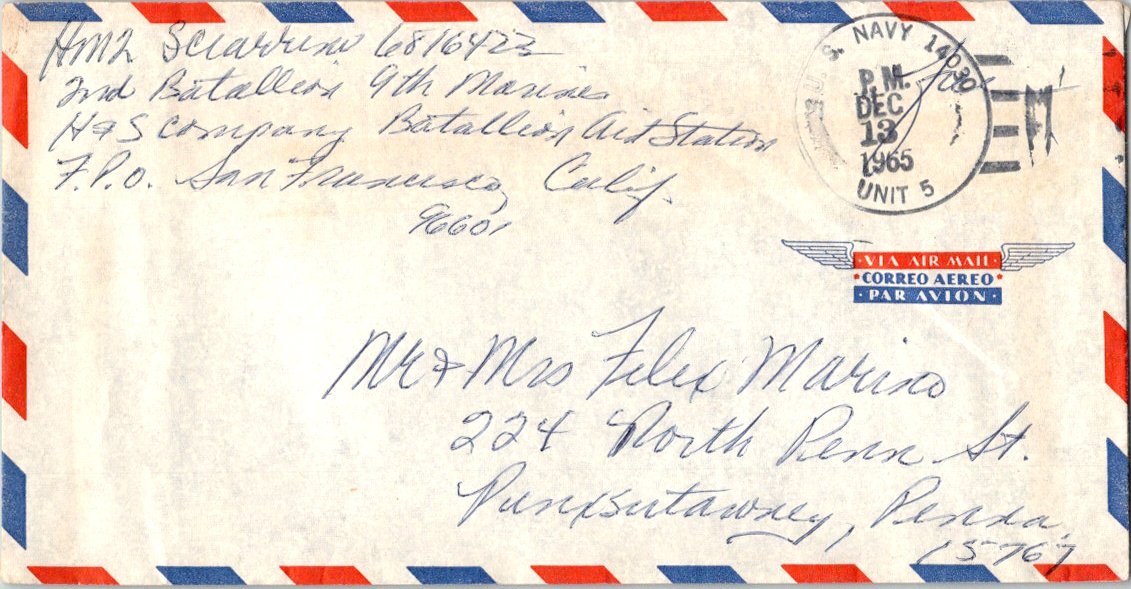 HM2 Sciarrino 6816422
2nd Batallion 9th Marines
H & S Company Batallion Aid Station
F.P.O. San Francisco, Calif.
96601
U. S. NAVY 14030
P.M.
DEC
13
1965
UNIT 5
Free
VIA AIR MAIL
CORREO AEREO
PAR AVION
Mr & Mrs Felix Marino
224 North Penn St.
Punxsutawney, Penna,
15767